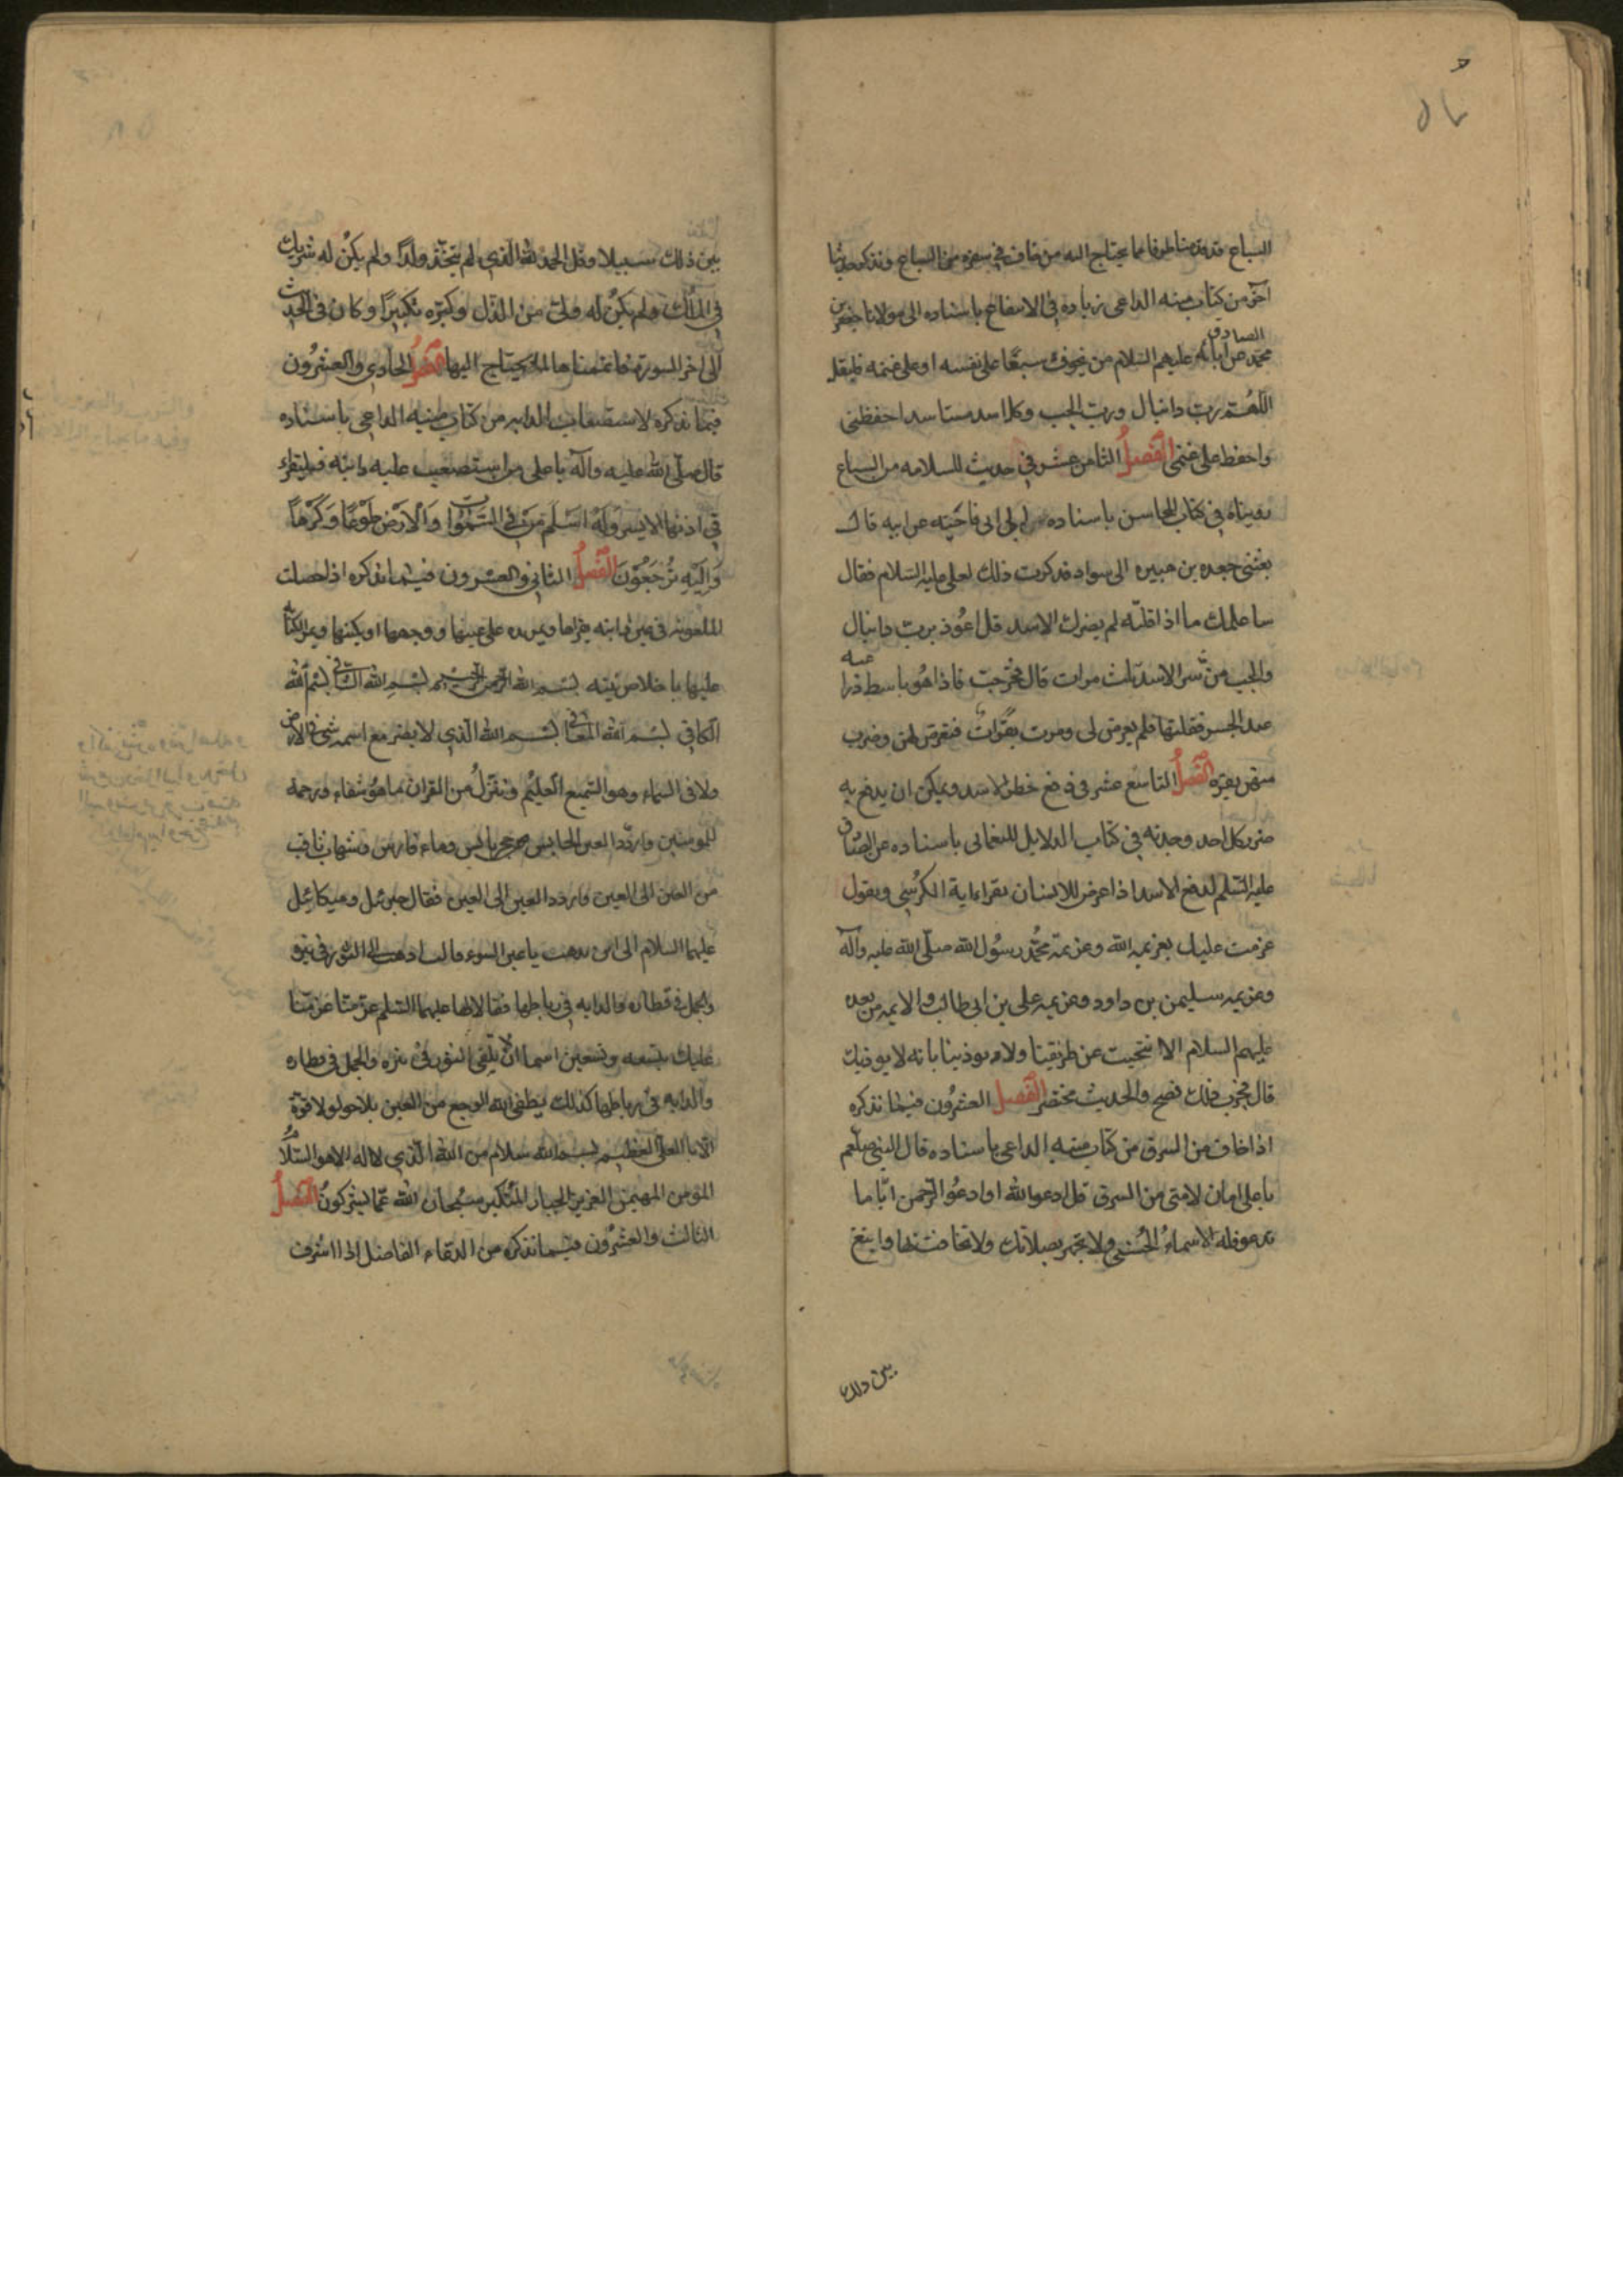 السباع قد قدمنا طرفا مما يحتاج اليه من خاف في سفره من السباع ونذكر حديثا
آخر من كتاب منيه الداعى زياده في الانتفاع باسناده الى مولانا جعفر بن
محمد الصادق عن آبائه عليهم السلام من تخوف سبعًا على نفسه او على غنمه فليقل
اللهُمّ رب دانيال وربّ الجب وكل اسد مستاسد احفظنى
واحفظ على غنمى الفصلُ الثامن عشر في حديث للسلامه من السباع
رويناه في كتاب المحاسن باسناده عن ابى فاخته عن ابيه قال
بعثنى جعده بن هبيره الى سوراء فذكرت ذلك لعلى عليه السلام فقال
ساعلمك ما اذا قلته لم يضرك الاسد قل اعُوذ بربّ دانيال
والجب من شر الاسد ثلث مرات قال فخرجت فاذا هُو باسط ذراعيه
عند الجسر فقلتها فلم يعرض لى ومرت بقرات فتعرض لهن وضرب
بقرة الفصلُ التاسع عشر فى دفع خطر الاسد ويمكن ان يدفع به
ضرر كل احد وجدته في كتاب الدلايل للنعمانى باسناده عن الصادق
عليه السّلم لدفع الاسد اذا عرض للانسان يقراء اية الكرُسي ويقول
عزمت عليك بعزيمه الله وعزيمة محُمّد رسُول الله صلّى الله عليه وآله
وعزيمه سليمن بن داود وعزيمه على بن ابى طالب والايمه من بعده
عليهم السلام الا تنحيت عن طريقنا ولا توذينا بانه لا يوذيك
قال فجرب ذلك فصح والحديث مختصر الفصل العشرُون فيما نذكره
اذا خاف من السرق من كتاب منيه الداعى باسناده قال النبي صلعم
يا على امان لامتى من السرق قل ادعوا الله او ادعُوا الرّحمن ايّا ما
تدعوا فله الاسماءُ الحُسنىٰ ولا تجهر بصلاتك ولا تخافت بها وابتغ
بين ذلك
بين ذلك سبيلا وقل الحمد لله الّذي لم يتّخذ ولدًا ولم يكنْ له شريك
في المُلك ولم يكنْ له ولىّ من الذّل وكبّره تكبيرًا وكان فى الحديث
الى اخر السورة فاتممناها لمن يحتاج اليها الفصلُ الحادى والعشرُون
فيما نذكره لاستصعاب الدابه من كتاب منيه الداعى باسناده
قال صلّى الله عليه وآله يا على من استصعب عليه دابته فليقراء
في اذنها الايسر وَلَهُ اَسْلَمَ مَنْ فِى السَّمٰوَاتِ وَالْاَرْضِ طَوْعًا وَكَرْهاً
وَاِلَيْهِ تُرْجَعُوْنَ الفصلُ الثاني والعشرون فيما نذكره اذا حصلت
الملعونه فى عين دابته يقراها ويمر يده على عينها ووجهها او يكتبها ويمر الكتابه
عليها باخلاص نيته بسم الله الرحمن الرحيم بسم الله الشافى بسم الله
الكافى بسم الله المعافى بسم الله الذى لا يضر مع اسمه شىء فى الارض
ولا فى السماء وهو السّميع العليُم وننزلُ من القران ما هُو شفاء ورحمة
للمومنين واردّد العين الحابس من حجر يابس وماء فارس وشهاب ثاقب
من العين الى العين واردد العين الى العين فقال جبرئل وميكائيل
عليهما السلام الى اين تذهب يا عين السوء قالت اذهب الى الثور فى نيره
والجمل فى قطاره والدابه فى رباطها فقالا لها عليهما السّلم عزمنا
عليك بتسعه وتسعين اسما ان لا تلقى الثور فى نيره والجمل فى قطاره
والدابه فى رباطها كذلك يطفى الله الوجع من العين بلا حول ولا قوة
الّا بالله العلىّ العظيم بسم الله سلام من الله الّذي لا اله الا هو السّلام
المؤمن المهيمن العزيز الجبار المُتكبر سُبحان الله عمّا يشركونُ الفصلُ
الثالث والعشرُون فيما نذكره من الدّعاء الفاضل اذا اشرف